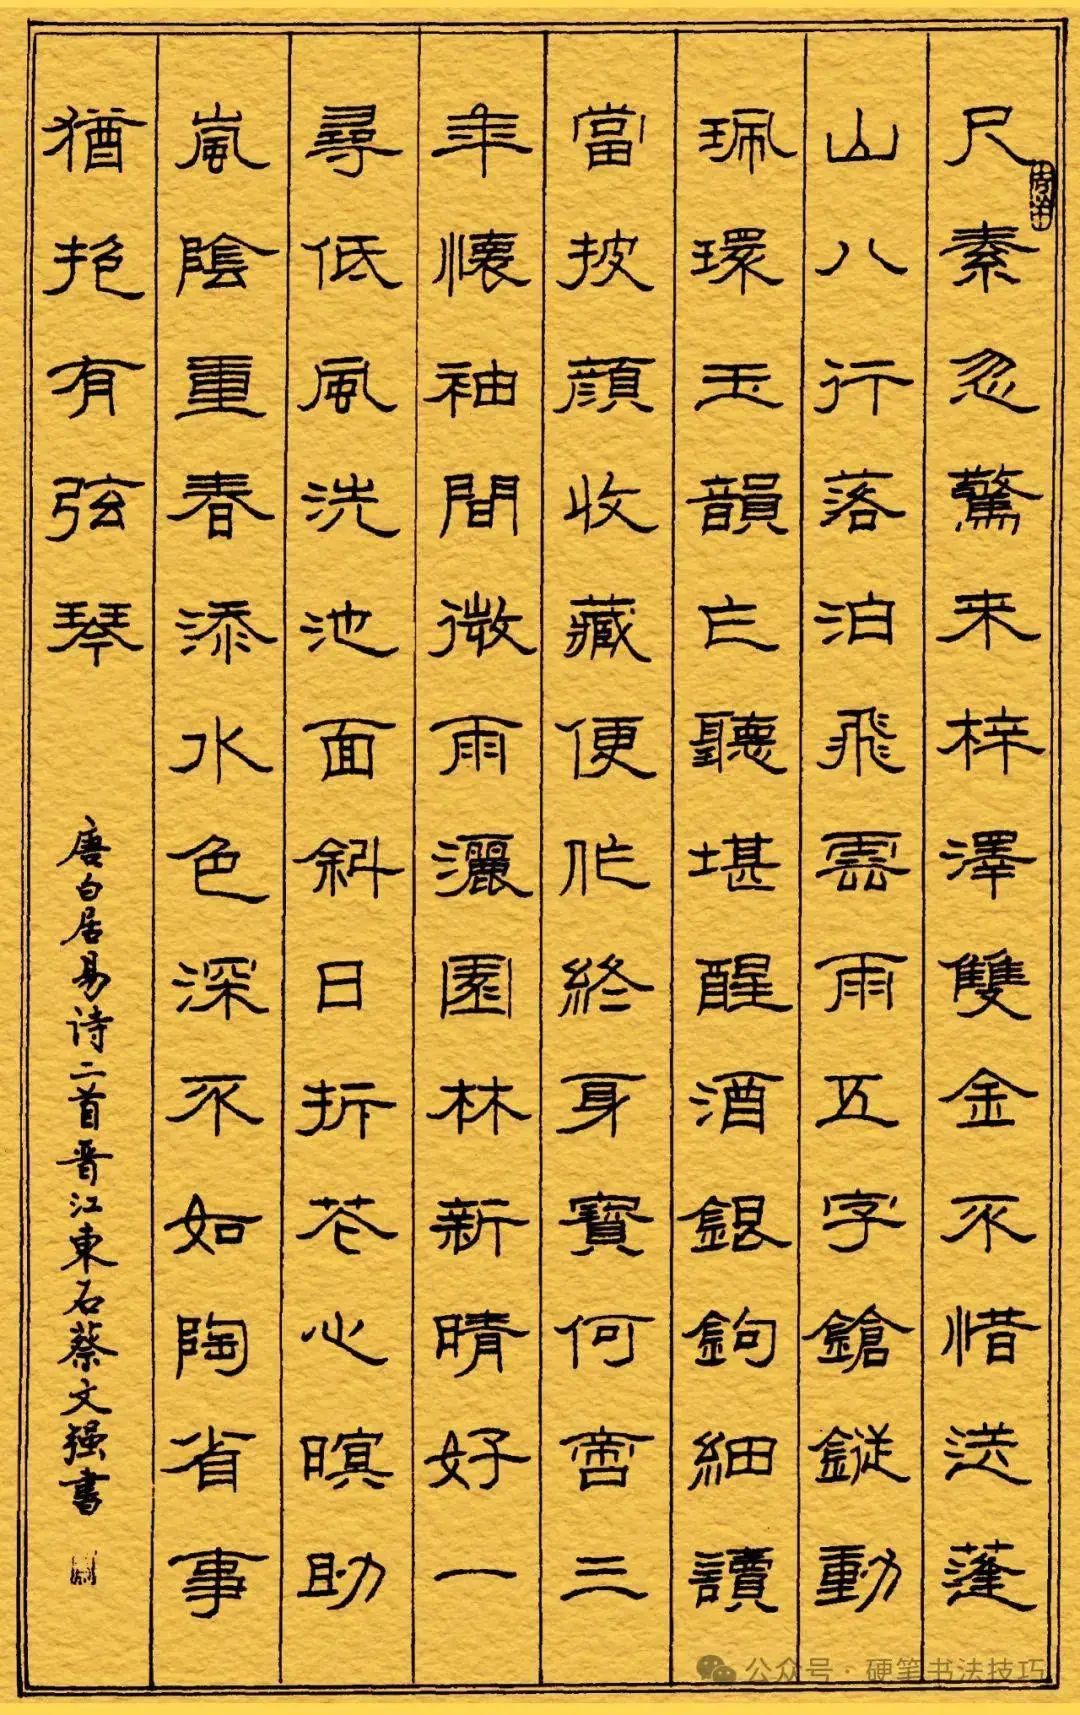 尺素忽驚来梓澤雙金不惜送蓬
山八行落泊飛雲雨五字鎗鏦動
珮環玉韻亡聽堪醒酒銀鉤細讀
當披顏收藏便作終身寶何啻三
年懷袖間微雨灑園林新晴好一
尋低風洗池面斜日拆花心暝助
嵐陰重春添水色深不如陶省事
猶抱有弦琴
唐白居易诗二首晋江東石蔡文强書
公众号·硬笔书法技巧